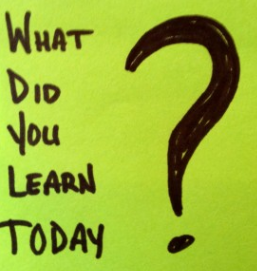 WHAT
DID
YOU
LEARN
TODAY
?